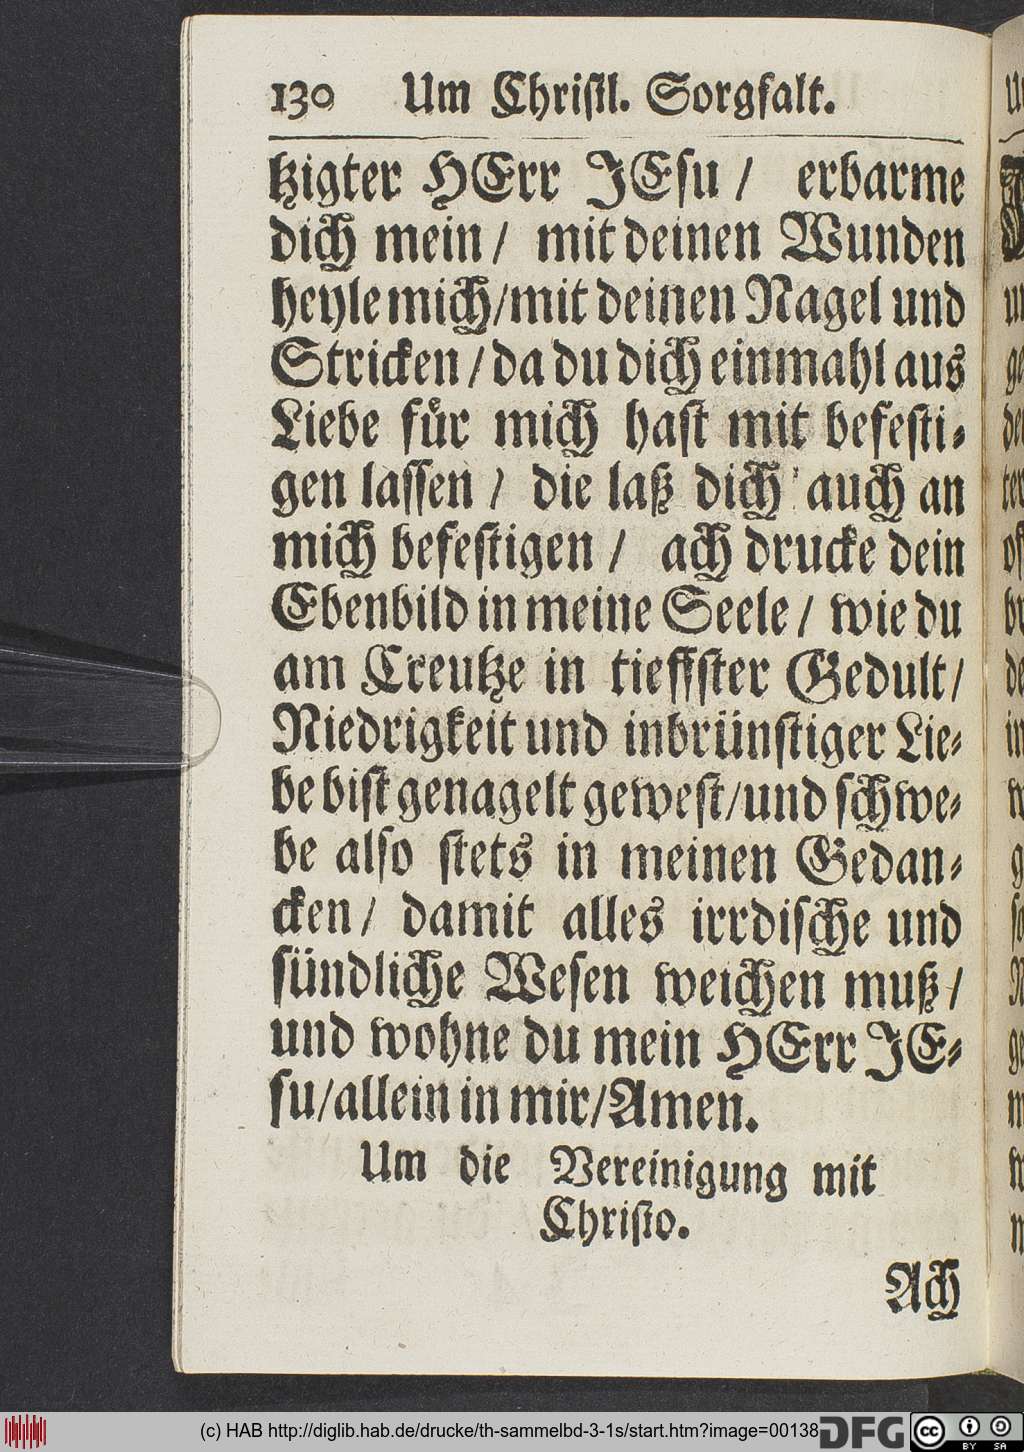 130 Um Christl. Sorgfalt.
tzigter HErr JEsu / erbarme
dich mein / mit deinen Wunden
heyle mich / mit deinen Nagel und
Stricken / da du dich einmahl aus
Liebe fuͤr mich hast mit befesti-
gen lassen / die laß dich auch an
mich befestigen / ach drucke dein
Ebenbild in meine Seele / wie du
am Creutze in tieffster Gedult /
Niedrigkeit und inbrünstiger Lie-
be bist genagelt gewest / und schwe-
be also stets in meinen Gedan-
cken / damit alles irrdische und
sündliche Wesen weichen muß /
und wohne du mein HErr JE-
su / allein in mir / Amen.
Um die Vereinigung mit
Christo.
Ach
(c) HAB http://diglib.hab.de/drucke/th-sammelbd-3-1s/start.htm?image=00138
DFG
cc BY SA